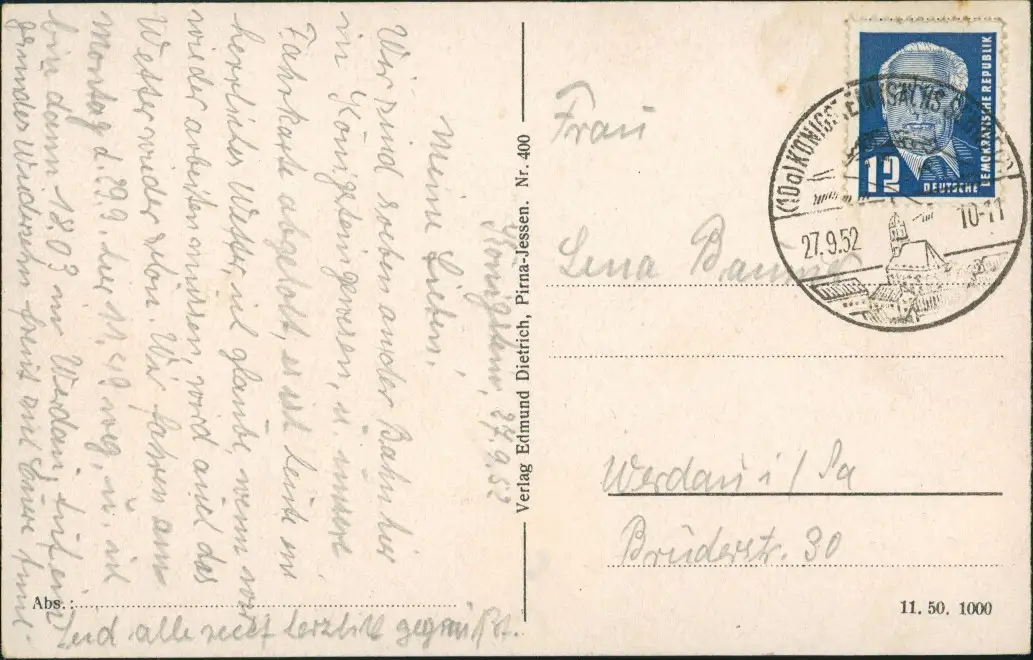 Königstein, 27.9.52
Meine Lieben!
Wir sind soeben an der Bahn hier
in Königstein gewesen, u. unsere
Fahrkarte abgeholt, es ist heute ein
herrliches Wetter, ich glaube, wenn wir
wieder arbeiten müssen, wird auch das
Wetter wieder schön. Wir fahren am
Montag d. 29.9. hier 11,49 weg, u. ich
bin dann 18.03 in Werdau,
Wiedersehn freut sich Eure
Seid alle recht herzlich gegrüßt.
Abs.:
Verlag Edmund Dietrich, Pirna-Jessen. Nr. 400
12
DEUTSCHE
DEMOKRATISCHE REPUBLIK
(10a) KÖNIGSTEIN (SÄCHS
27.9.52
10-11
Frau
Lena
Werdau i/Sa
Brüderstr. 30
11. 50. 1000